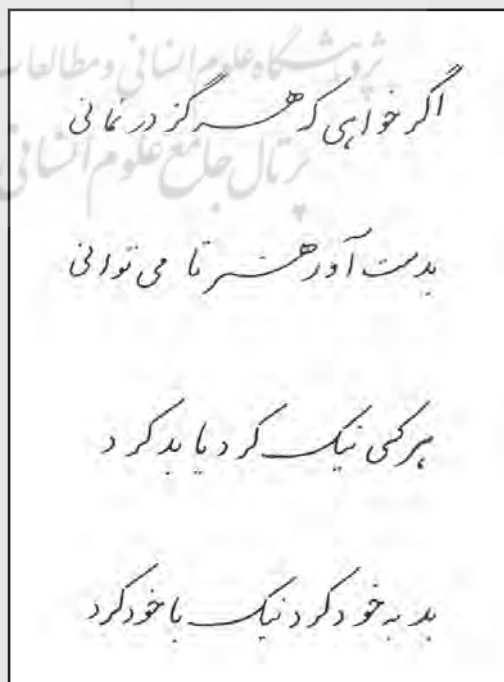 پژوهشگاه علوم انسانی و مطالعات
پرتال جامع علوم انسانی
اگر خواهی که هرگز در نمانی
بدست آور هنر تا می توانی
هر کسی نیک کرد یا بد کرد
بد به خود کرد نیک با خود کرد